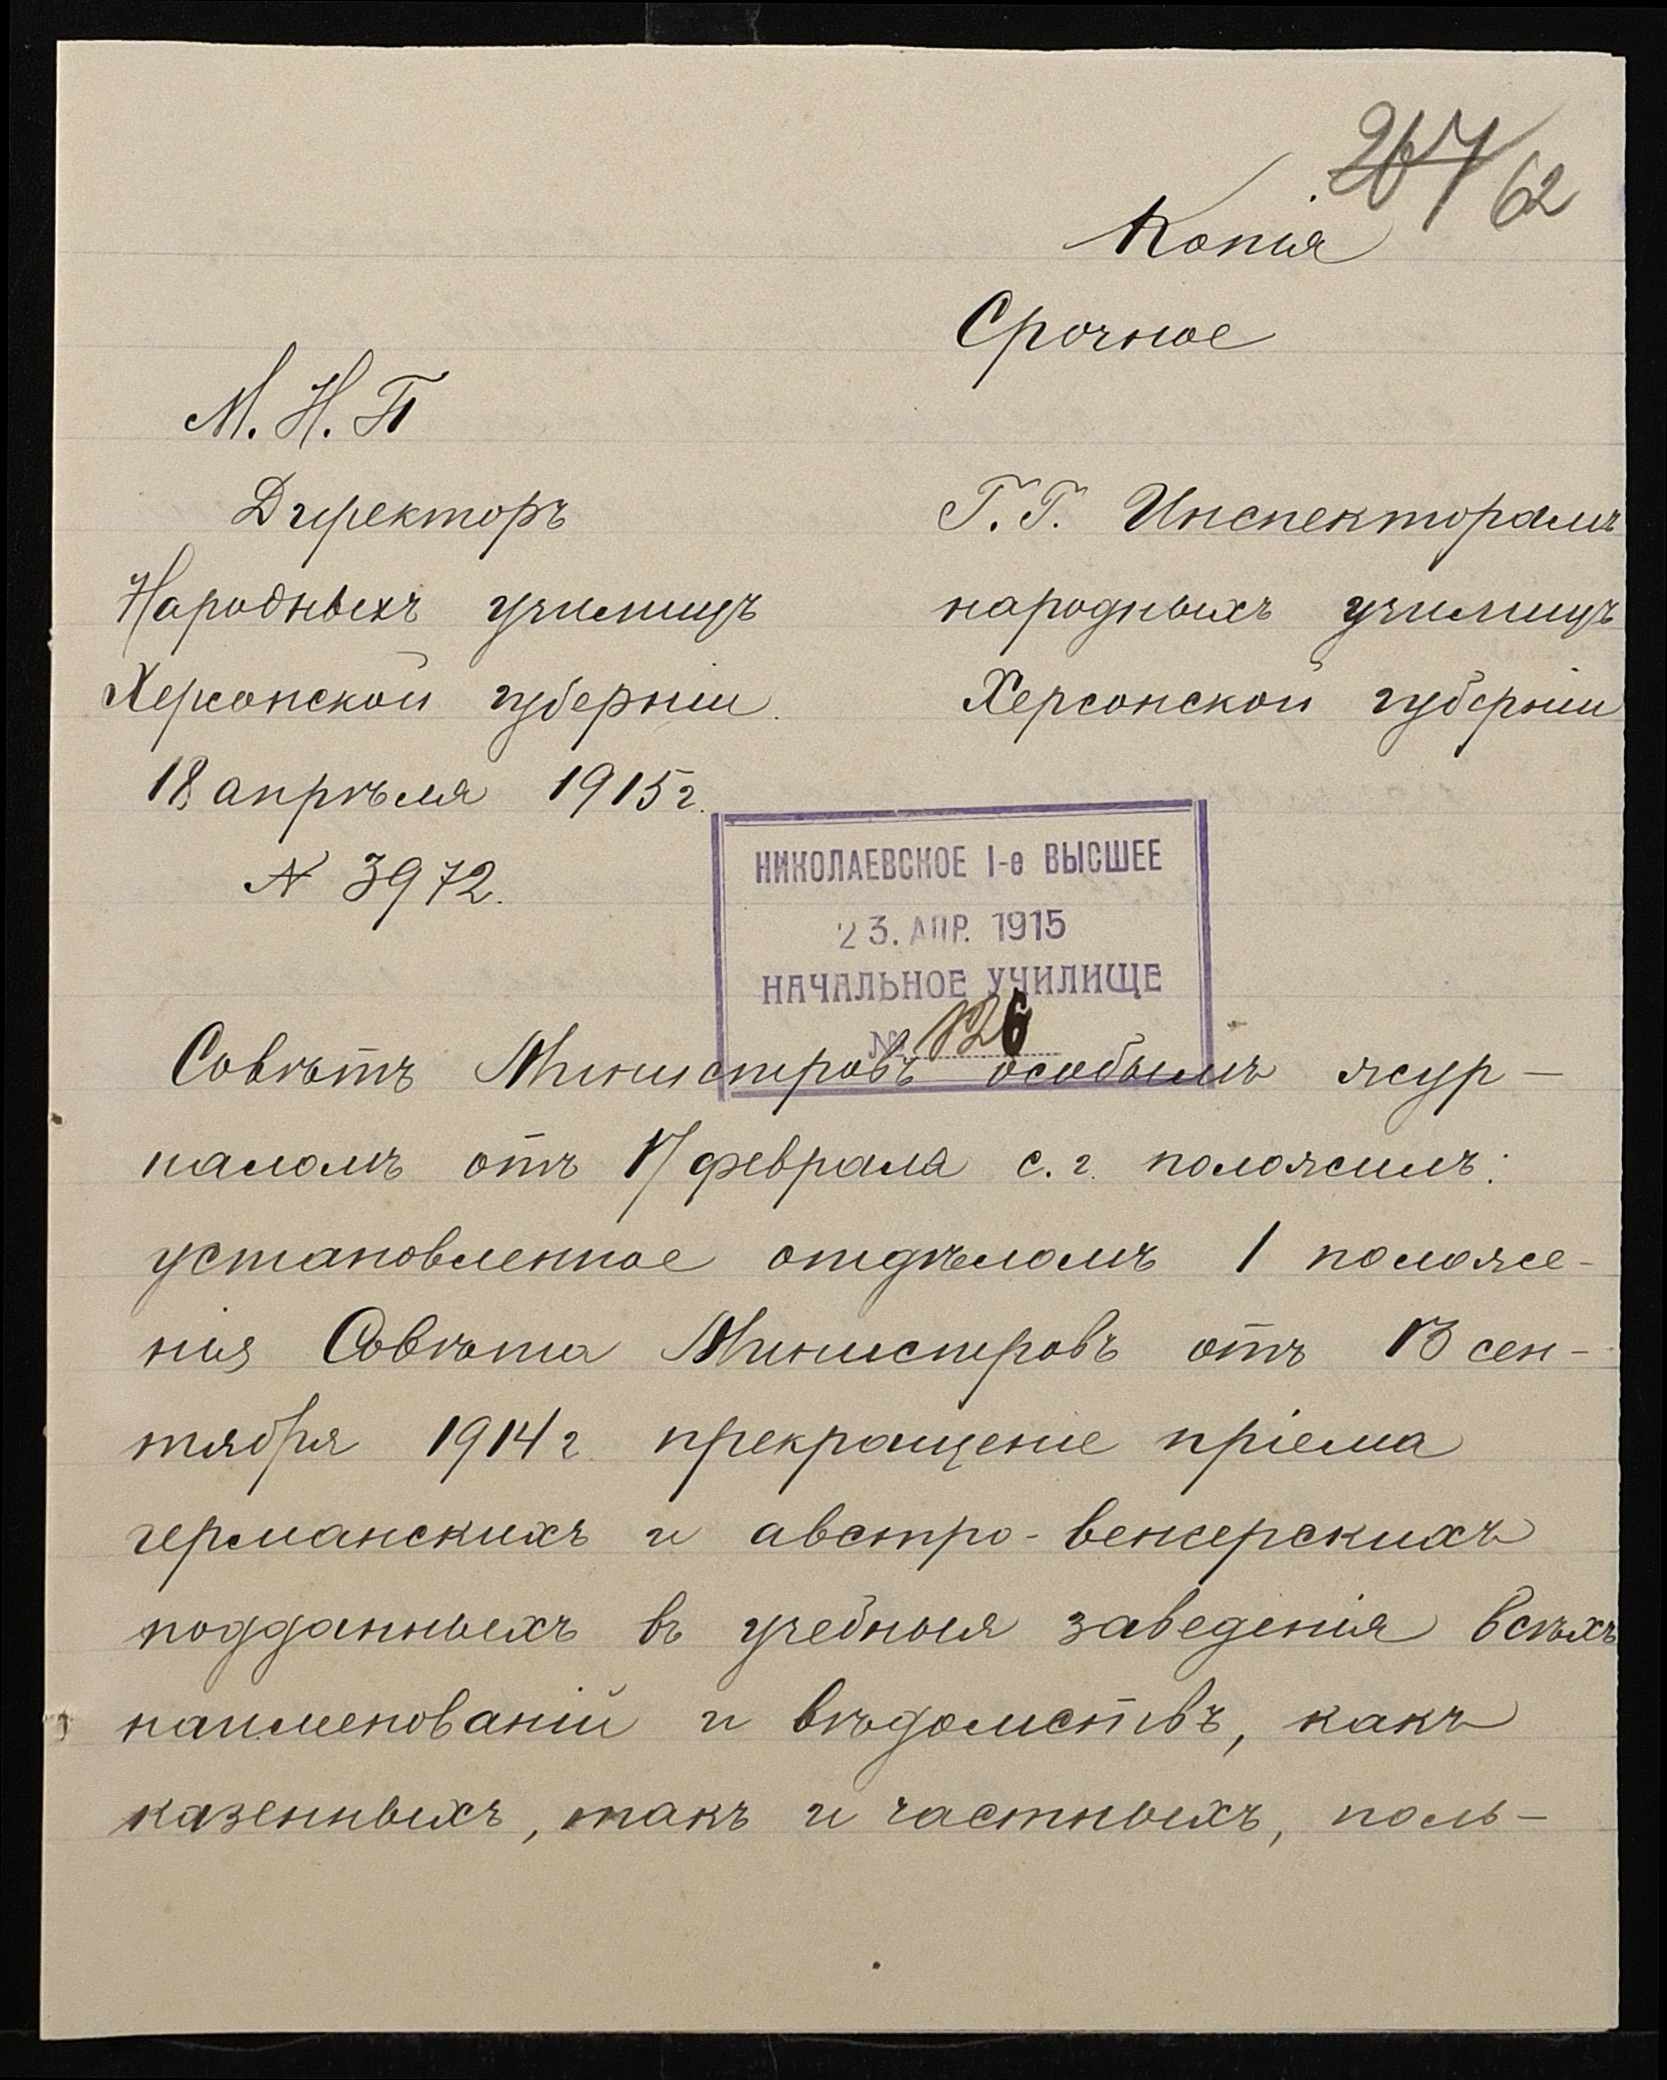 267 62
Копія
Срочное
М. Н. П
Директоръ
Народныхъ училищъ
Херсонской губерніи.
18 апрѣля 1915 г.
№ 3972.
Г.Г. Инспекторамъ
народныхъ училищъ
Херсонской губерніи
НИКОЛАЕВСКОЕ I-е ВЫСШЕЕ
23. АПР. 1915
НАЧАЛЬНОЕ УЧИЛИЩЕ
№ 126
Совѣтъ Министровъ особымъ жур-
наломъ отъ 17 февраля с. г. положилъ:
установленное отдѣломъ 1 положе-
нія Совѣта Министровъ отъ 13 сен-
тября 1914 г. прекращеніе пріема
германскихъ и австро-венгерскихъ
подданныхъ въ учебныя заведенія всѣхъ
наименованій и вѣдомствъ, какъ
казенныхъ, такъ и частныхъ, поль-